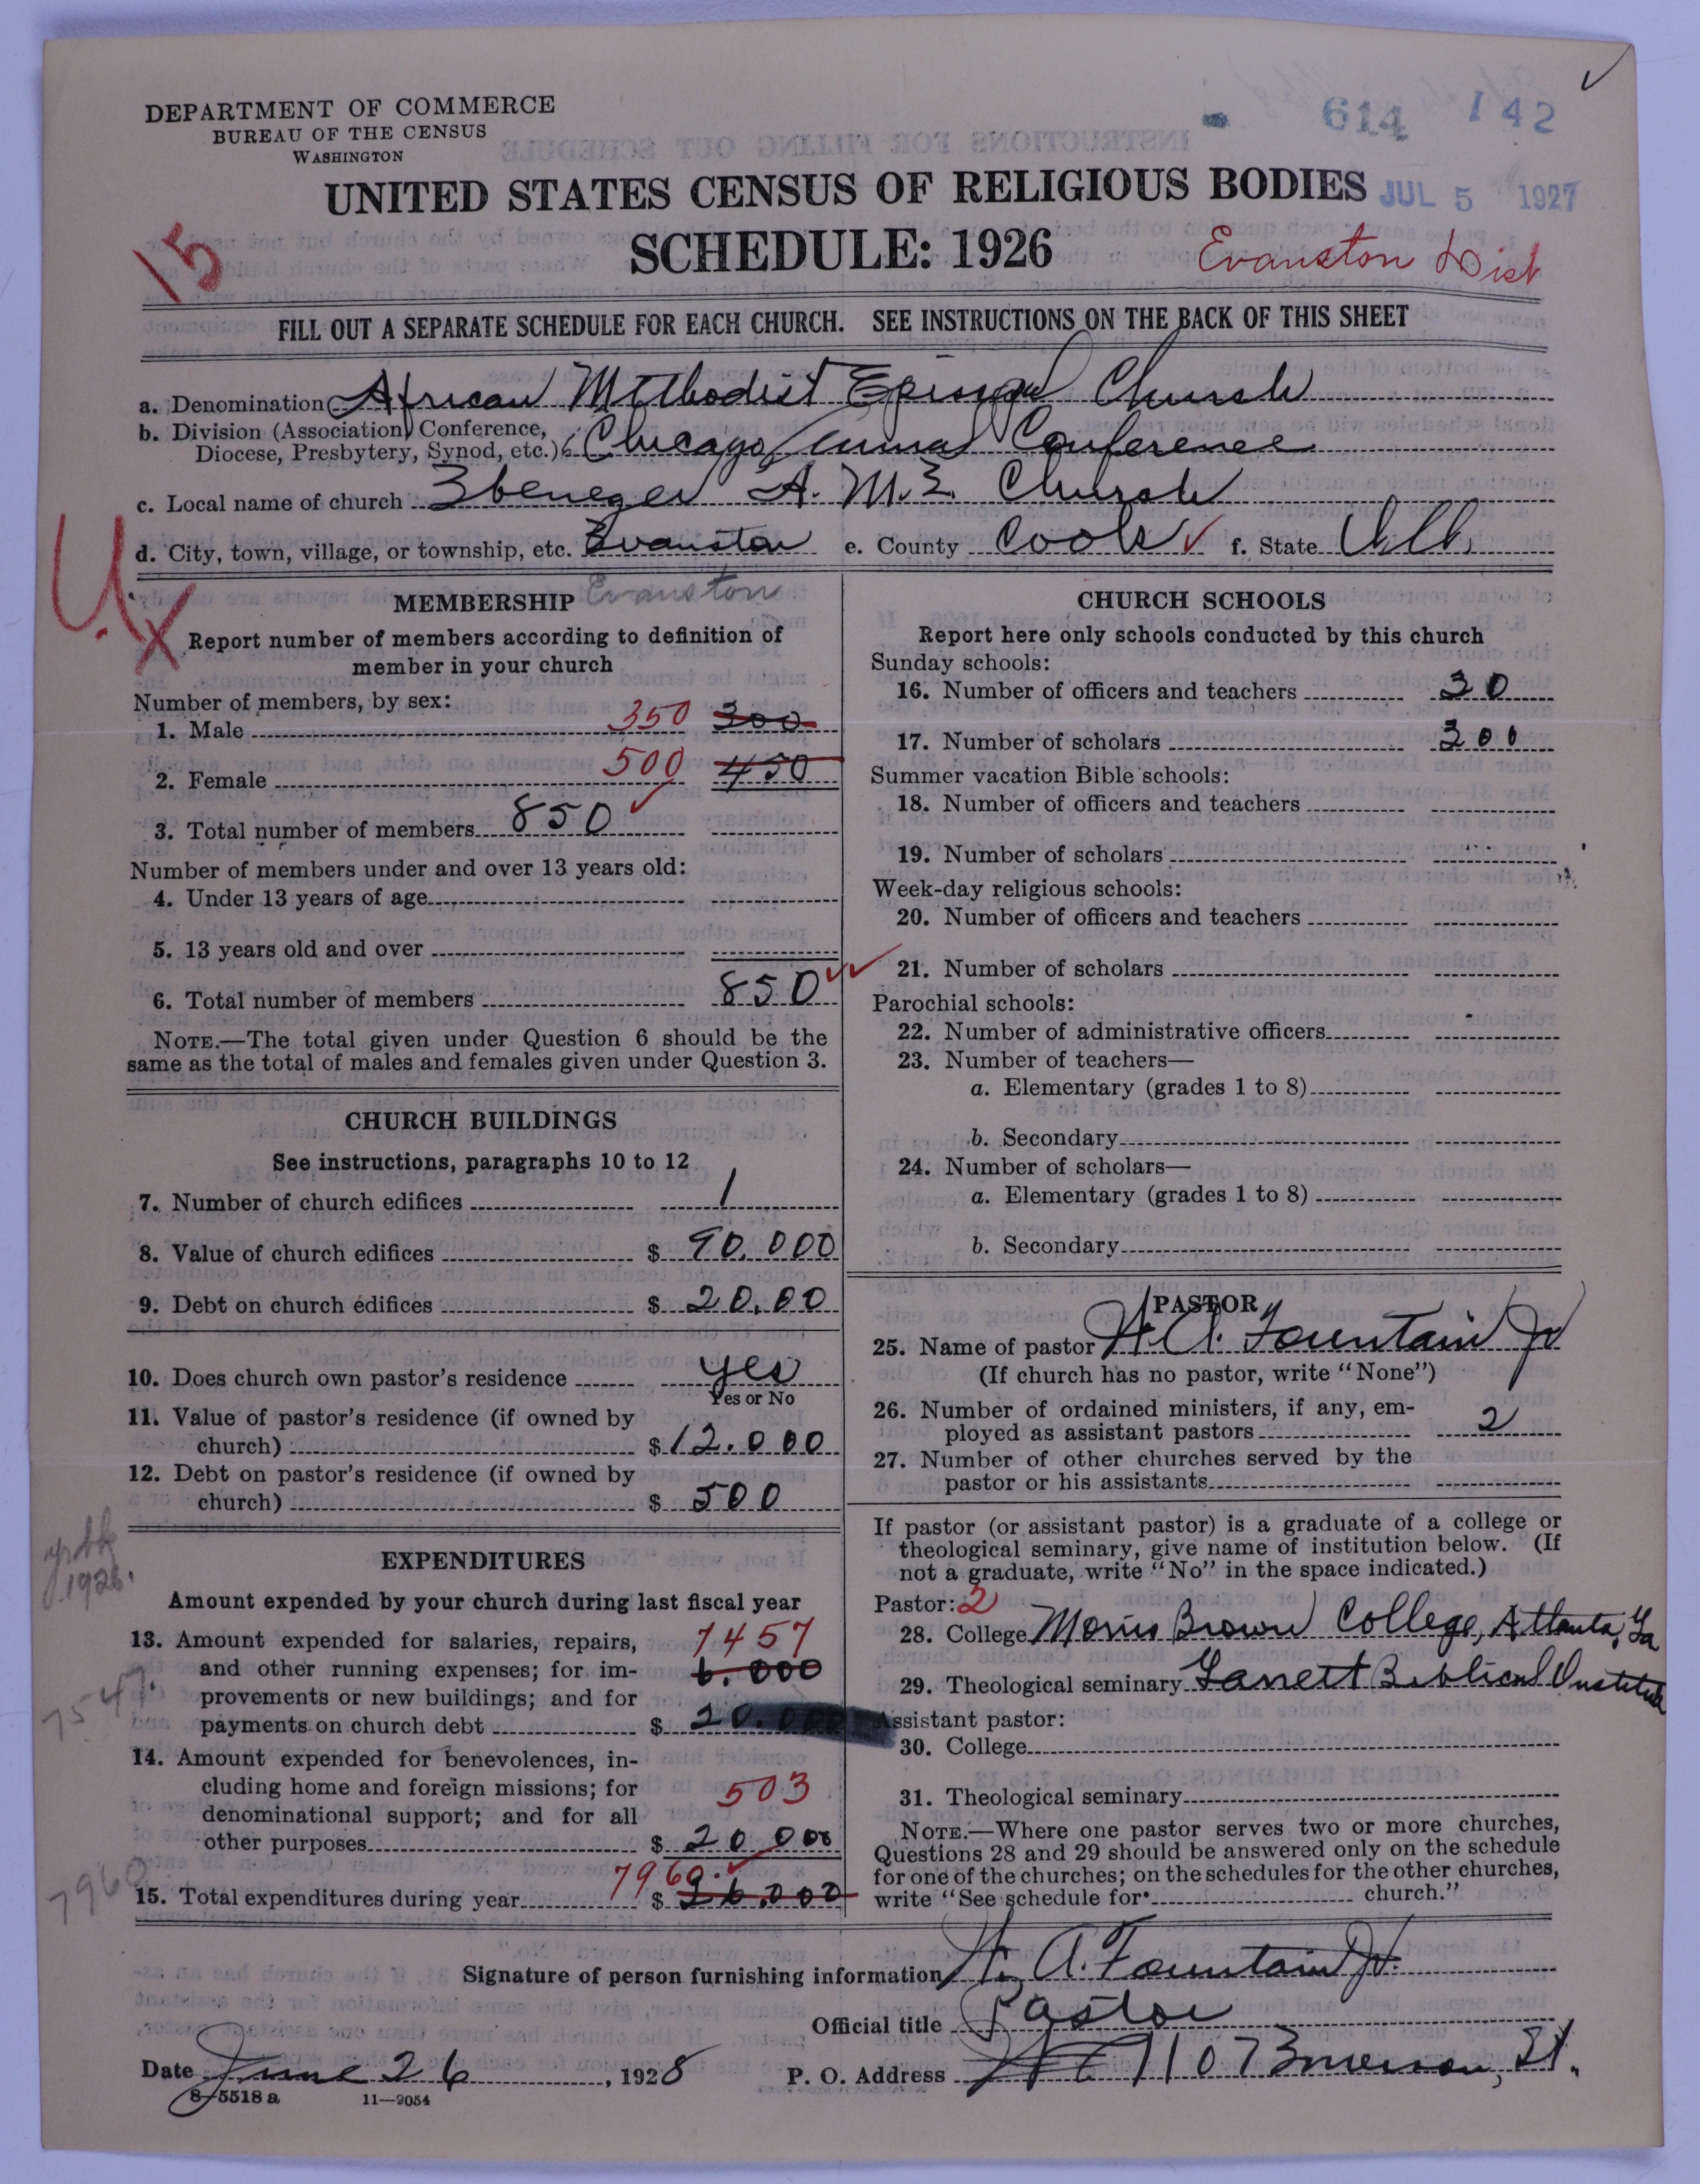 DEPARTMENT OF COMMERCE
BUREAU OF THE CENSUS
WASHINGTON
614 142
UNITED STATES CENSUS OF RELIGIOUS BODIES
JUL 5 1927
15
SCHEDULE: 1926
Evanston Dist
FILL OUT A SEPARATE SCHEDULE FOR EACH CHURCH. SEE INSTRUCTIONS ON THE BACK OF THIS SHEET
a. Denomination African Methodist Episcopal Church
b. Division (Association, Conference,
Diocese, Presbytery, Synod, etc.) Chicago Annual Conference
c. Local name of church Ebenezer A. M. E. Church
d. City, town, village, or township, etc. Evanston e. County Cook f. State Ill.
Evanston
MEMBERSHIP
Report number of members according to definition of
member in your church
Number of members, by sex:
1. Male 350 300
2. Female 500 450
3. Total number of members 850
Number of members under and over 13 years old:
4. Under 13 years of age
5. 13 years old and over
6. Total number of members 850
NOTE.—The total given under Question 6 should be the
same as the total of males and females given under Question 3.
CHURCH BUILDINGS
See instructions, paragraphs 10 to 12
7. Number of church edifices 1
8. Value of church edifices $ 90.000
9. Debt on church edifices $ 20.00
10. Does church own pastor's residence yes
Yes or No
11. Value of pastor's residence (if owned by
church) $ 12.000
12. Debt on pastor's residence (if owned by
church) $ 500
yrbk
1926.
EXPENDITURES
Amount expended by your church during last fiscal year
13. Amount expended for salaries, repairs, 7457
and other running expenses; for im- 6.000
provements or new buildings; and for
payments on church debt $ 20.000
14. Amount expended for benevolences, in-
cluding home and foreign missions; for 503
denominational support; and for all
other purposes $ 20.000
7960
15. Total expenditures during year 7960. $ 26.000
CHURCH SCHOOLS
Report here only schools conducted by this church
Sunday schools:
16. Number of officers and teachers 30
17. Number of scholars 300
Summer vacation Bible schools:
18. Number of officers and teachers
19. Number of scholars
Week-day religious schools:
20. Number of officers and teachers
21. Number of scholars
Parochial schools:
22. Number of administrative officers
23. Number of teachers—
a. Elementary (grades 1 to 8)
b. Secondary
24. Number of scholars—
a. Elementary (grades 1 to 8)
b. Secondary
PASTOR
25. Name of pastor W. A. Fountain Jr
(If church has no pastor, write "None")
26. Number of ordained ministers, if any, em-
ployed as assistant pastors 2
27. Number of other churches served by the
pastor or his assistants
If pastor (or assistant pastor) is a graduate of a college or
theological seminary, give name of institution below. (If
not a graduate, write "No" in the space indicated.)
Pastor: 2
28. College Morris Brown College, Atlanta, Ga
29. Theological seminary Garrett Biblical Institute
Assistant pastor:
30. College
31. Theological seminary
NOTE.—Where one pastor serves two or more churches,
Questions 28 and 29 should be answered only on the schedule
for one of the churches; on the schedules for the other churches,
write "See schedule for church."
Signature of person furnishing information W. A. Fountain Jr.
Official title Pastor
Date June 26, 1928 P. O. Address 1107 Emerson, St.
8-5518 a 11—9054